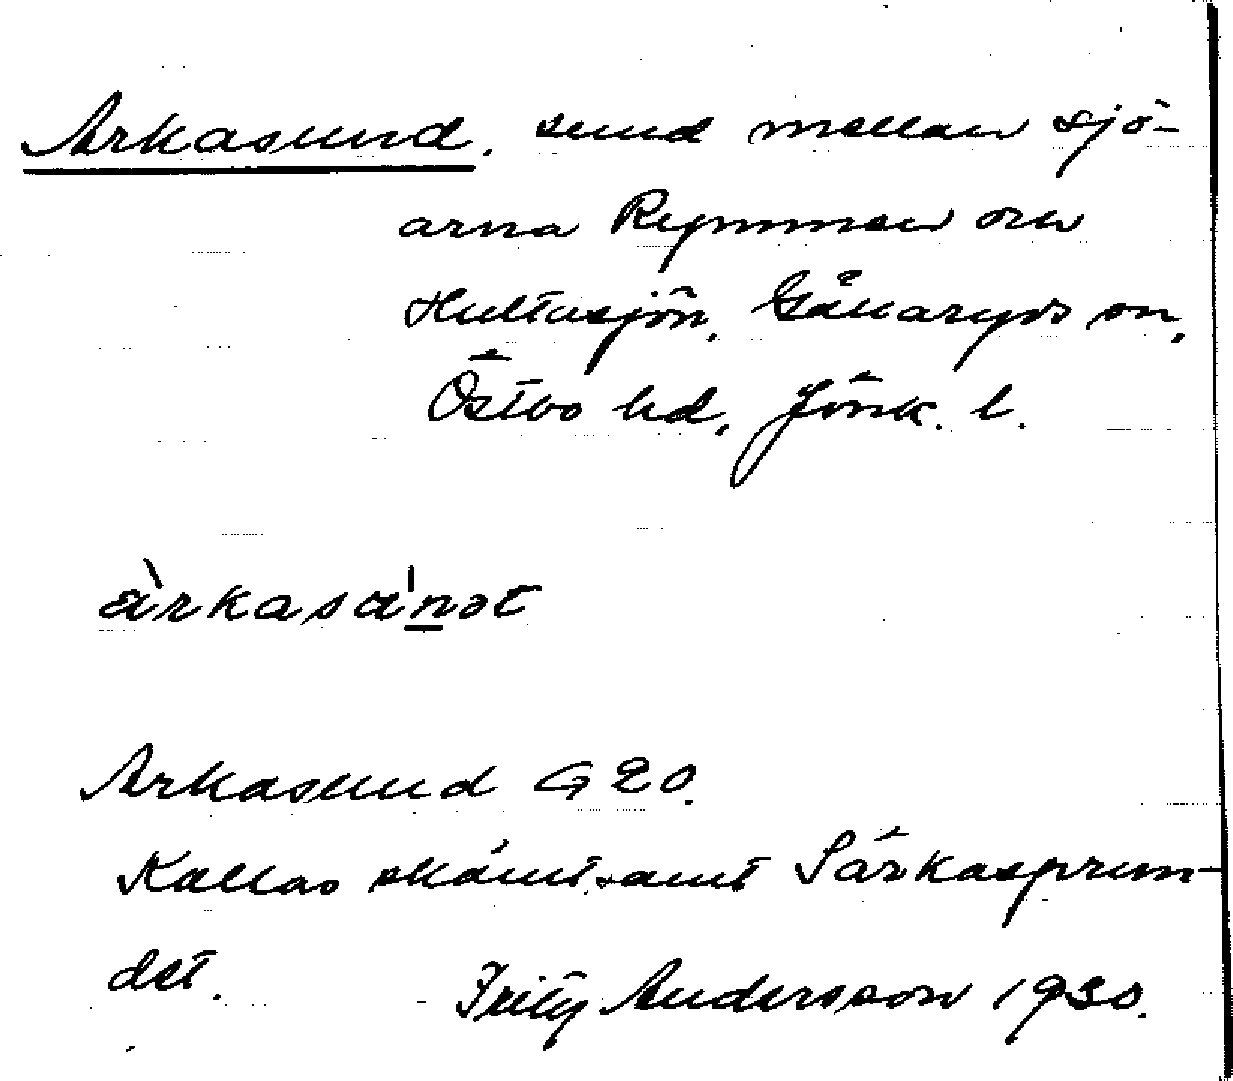 Arkasund, sund mellan sjö-
arna Rymmen och
Hultasjön, Gällaryds sn,
Östbo hd, Jönk. l.
àrkasa'nət
Arkasund G 20.
Kallas skämtsamt Särkasprun-
det.
Fritz Andersson 1930.